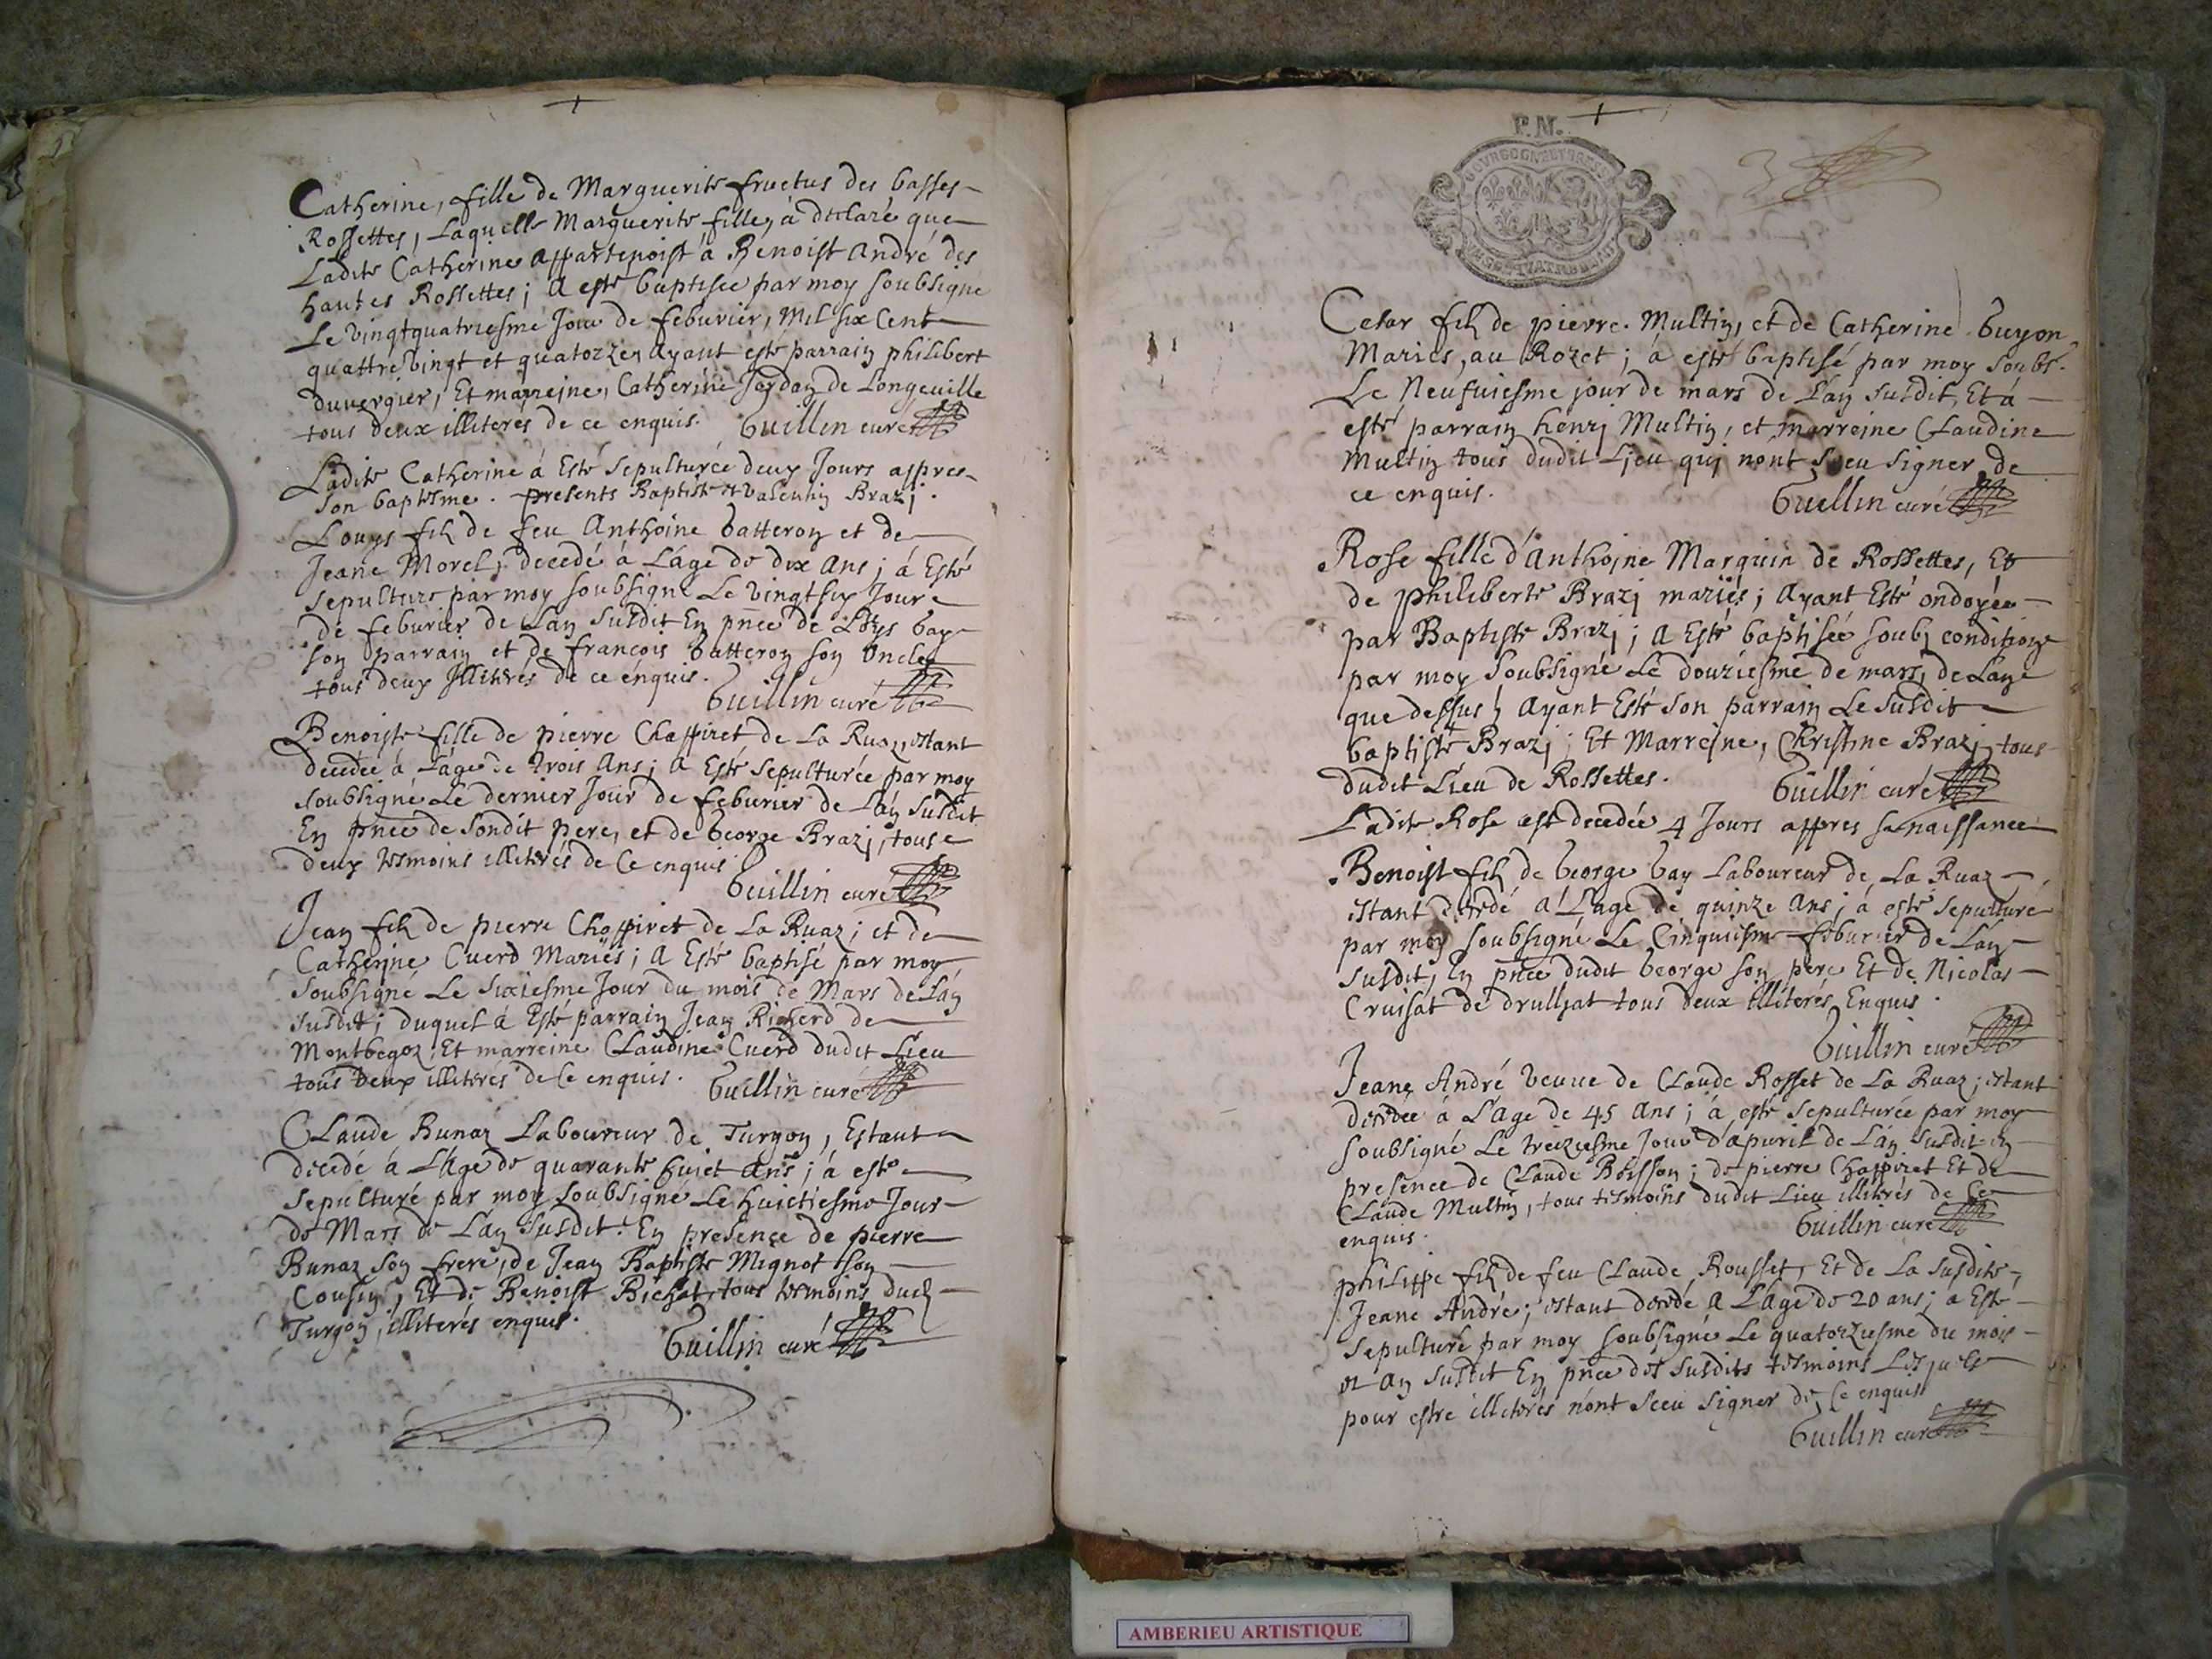 Catherine, fille de Marguerite fructus des basses
Rossettes, Laquelle Marguerite fille, à declaré que
Ladite Catherine appartenoist à Benoist André des
hautes Rossettes; a esté baptisée par moy soubsigné
Le vingtquatriesme Jour de feburier, mil six Cent
quattre vingt et quatorze, ayant esté parrain philibert
duvergier, Et marreine, Catherine Jordan de Longeville
tous deux illiterés de ce enquis. Guillin curé
Ladite Catherine à Esté sepulturée deux Jours appres
son baptesme. presents Baptiste et Valentin Brazj.
Louys filz de feu Anthoine Gatteron et de
Jeane Morel, decedé à L'age de dix ans; à Esté
sepulturé par moy soubsigné Le vingtsix Jour
de feburier de L'an susdit En pnce de Loys Gay
son parrain et de françois Gatteron son Oncle
tous deux Illiterés de ce enquis.
Guillin curé
Benoiste fille de pierre Chappiret de La Ruaz, estant
decedée à L'age de trois ans; a Esté sepulturée par moy
soubsigné Le dernier Jour de feburier de L'an susdit
En pnce de sondit pere, et de George Brazj, tous
deux tesmoins illiterés de Ce enquis
Guillin curé
Jean filz de pierre Chappiret de La Ruaz; et de
Catherine Cuerd Mariés; A Esté baptisé par moy
soubsigné Le sixiesme Jour du mois de Mars de L'an
susdit; duquel à Esté parrain Jean Richerd de
Montbegoz; Et marreine Claudine Cuerd dudit Lieu
tous deux illiterés de Ce enquis. Guillin curé
Claude Bunaz Laboureur de Turgon, Estant
decedé à L'Age de quarante huict ans; à esté
sepulturé par moy soubsigné Le huictiesme Jour
de Mars de L'an susdit. En presence de pierre
Bunaz son frere, de Jean Baptiste Mignot son
Cousin, Et de Benoist Bichat, tous tesmoins dud
Turgon, illiterés enquis.
Guillin curé
P.N.
Cesar filz de pierre Multin, et de Catherine Guyon
Mariés, au Rozet; à esté baptisé par moy soubs.
Le Neufviesme jour de mars de L'an susdit, Et à
esté parrain henrj Multin, et marreine Claudine
Multin tous dudit Lieu quj n'ont sceu signer de
ce enquis.
Guillin curé
Rose fille d'Anthoine Marquin de Rossettes, Et
de philiberte Brazj mariés; Ayant Esté ondoyée
par Baptiste Brazj; a Esté baptisée soubz condition
par moy soubsigné Le douziesme de mars, de L'an
que dessus; Ayant Esté son parrain Le susdit
baptiste Brazj; Et Marreine, Christine Brazj tous
dudit Lieu de Rossettes.
Guillin curé
Ladite Rose est decedée 4 Jours appres sa naissance
Benoist filz de George Gay Laboureur de La Ruaz
estant decedé à L'age de quinze ans; à esté sepulturé
par moy soubsigné Le Cinquiesme feburier de L'an
susdit, En pnce dudit George son pere Et de Nicolas
Cruisat de drulliat tous deux illiterés Enquis.
Guillin curé
Jeane André veuve de Claude Rosset de La Ruaz; estant
decedée à L'Age de 45 ans; à esté sepulturée par moy
soubsigné Le treiziesme Jour d'apuril de L'an susdit En
presence de Claude Boisson; de pierre Chappiret Et de
Claude Multin, tous tesmoins dudit Lieu illiterés de Ce
enquis.
Guillin curé
philippe filz de feu Claude Rousset, Et de La susdite
Jeane André; estant decedé A L'Age de 20 ans; a Esté
sepulturé par moy soubsigné Le quatorziesme du mois
et an susdit En pnce des susdits tesmoins Lesquels
pour estre illiterés n'ont sceu signer de Ce enquis
Guillin curé
AMBERIEU ARTISTIQUE